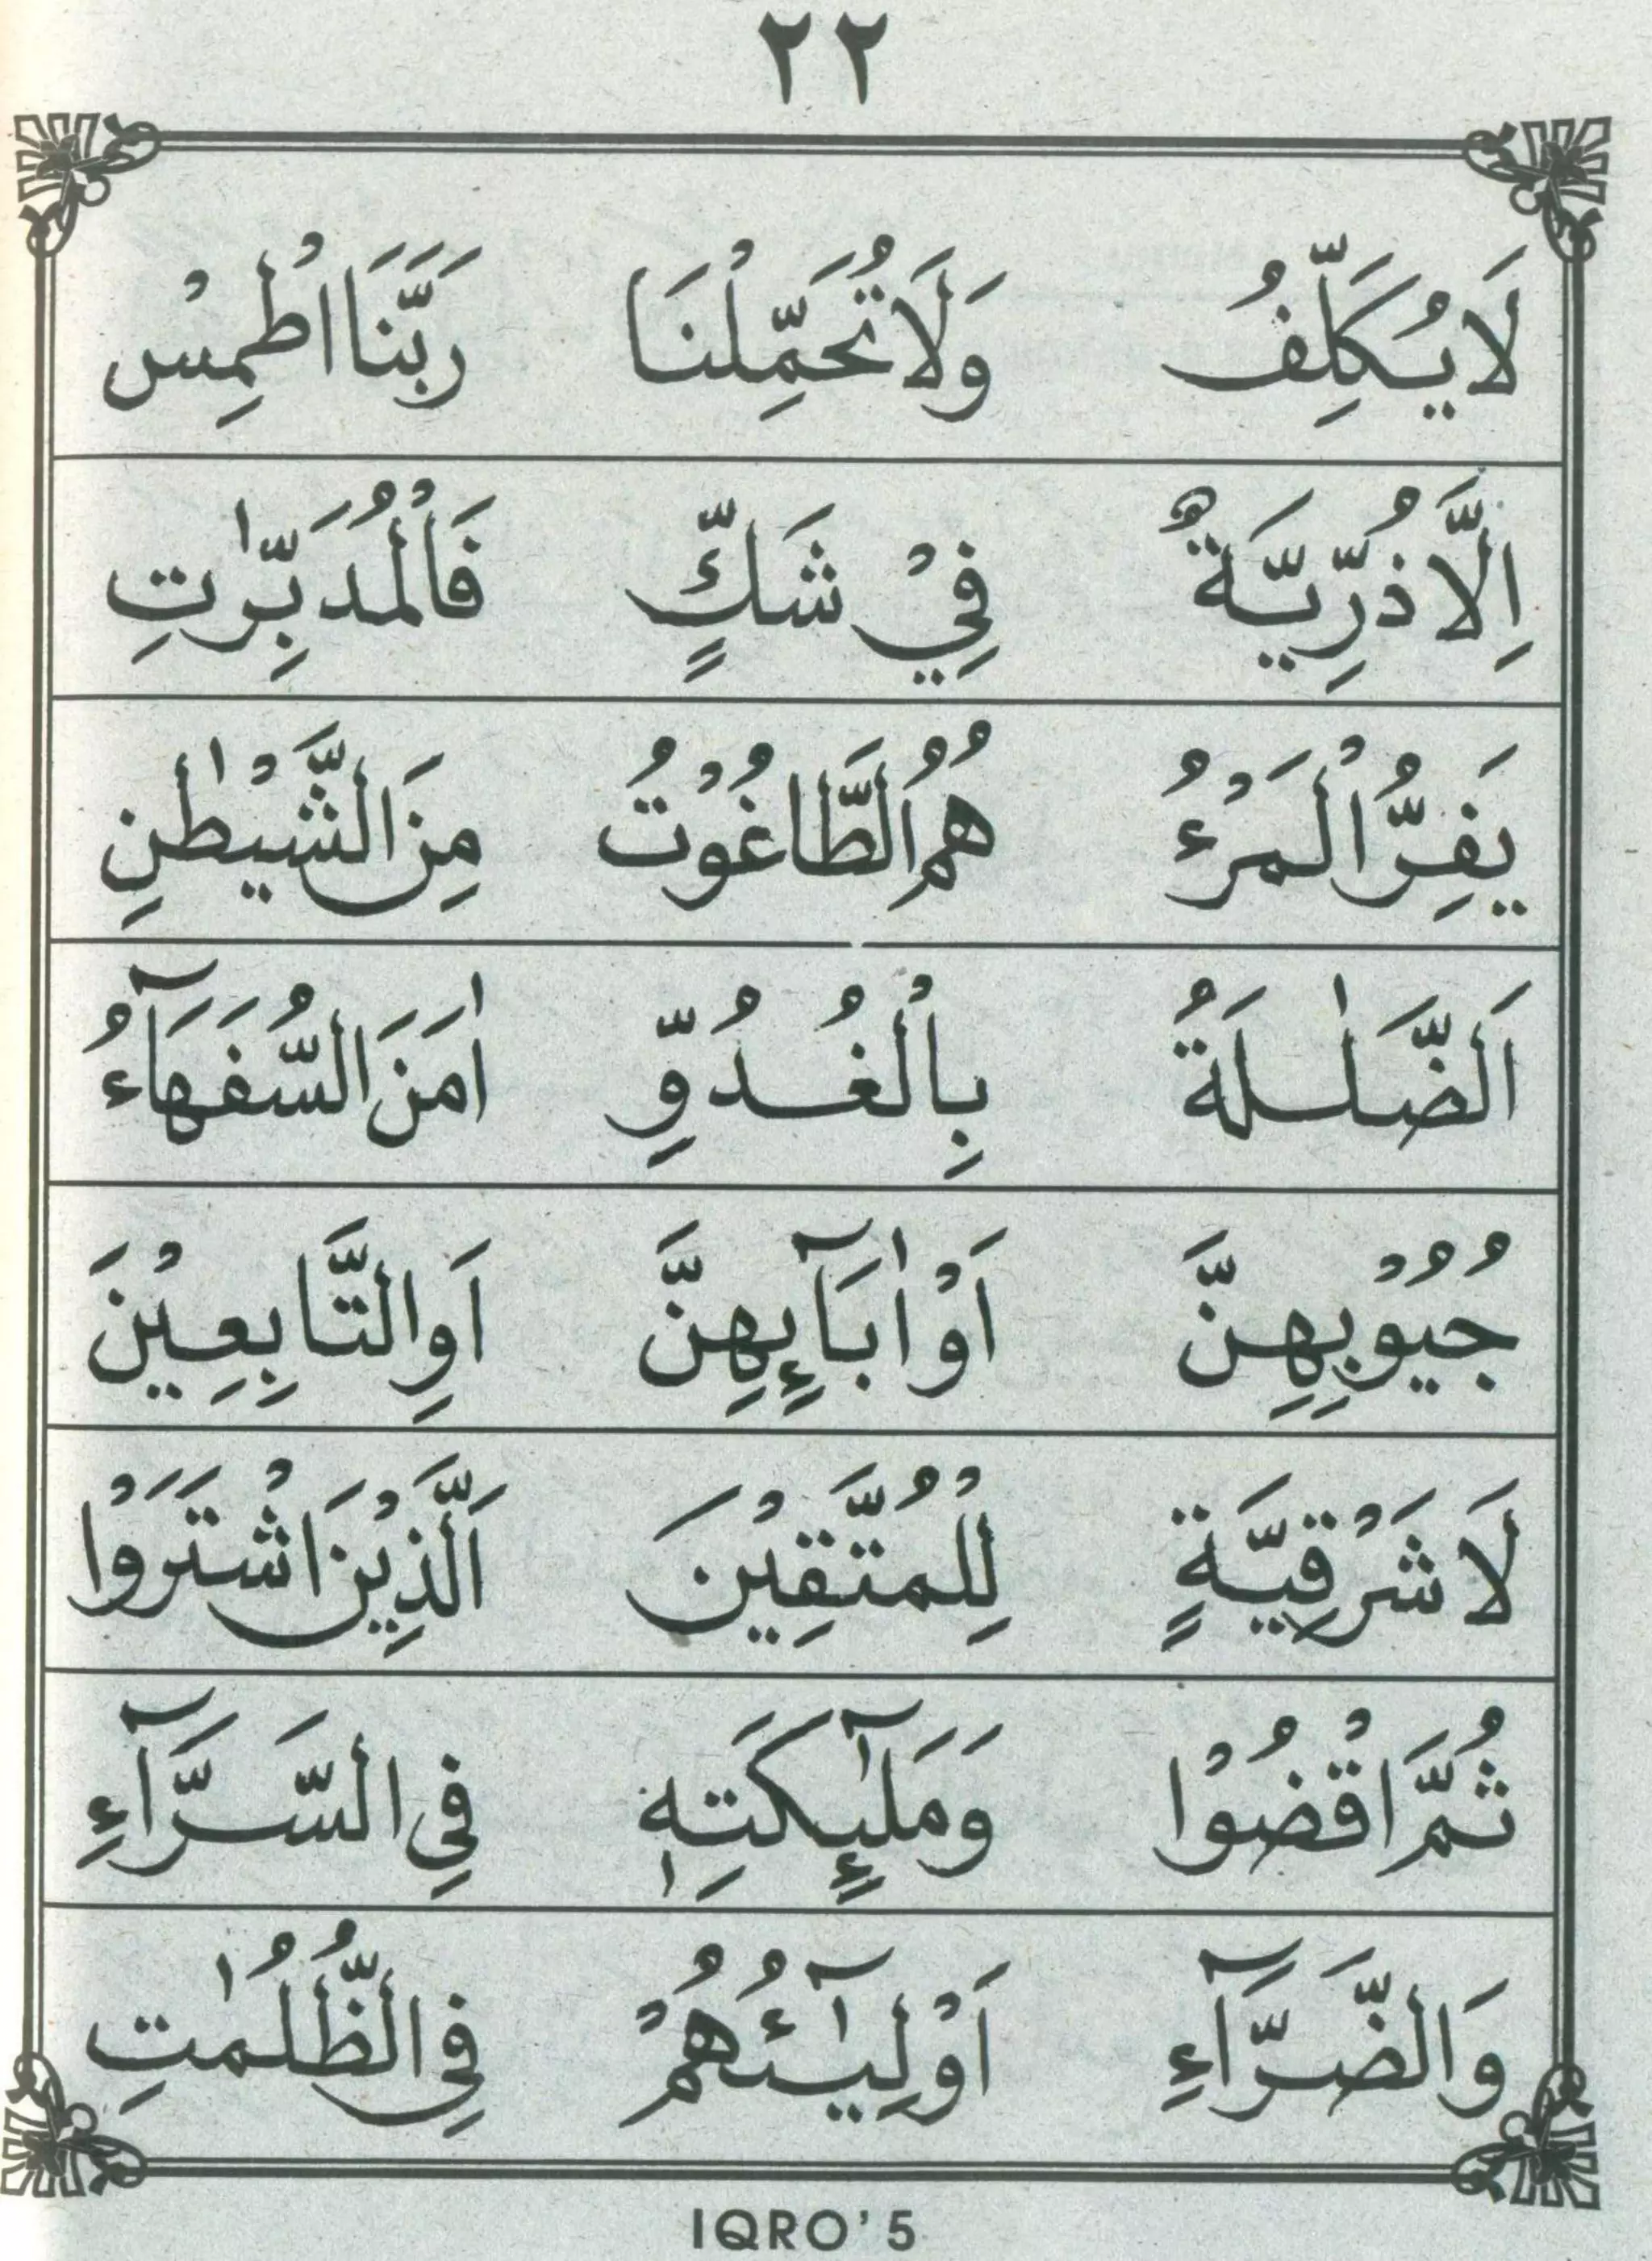 ٢٢
لَا يُكَلِّفُ وَلَا تُحَمِّلْنَا رَبَّنَا اطْمِسْ
اِلَّا ذُرِّيَّةٌ فِيْ شَكٍّ فَالْمُدَبِّرٰتِ
يَفِرُّ الْمَرْءُ هُمُ الطَّاغُوْتُ مِنَ الشَّيْطٰنِ
اَلضَّلٰلَةُ بِالْغُدُوِّ اٰمَنَ السُّفَهَآءُ
جُيُوْبِهِنَّ اَوْ اٰبَآىِٕهِنَّ اَوِ التَّابِعِيْنَ
لَا شَرْقِيَّةٍ لِلْمُتَّقِيْنَ اَلَّذِيْنَ اشْتَرَوْا
ثُمَّ اقْضُوْا وَمَلٰٓىِٕكَتِهٖ فِي السَّرَّآءِ
وَالضَّرَّآءِ اَوْلِيٰٓـُٔهُمْ فِي الظُّلُمٰتِ
IQRO'5